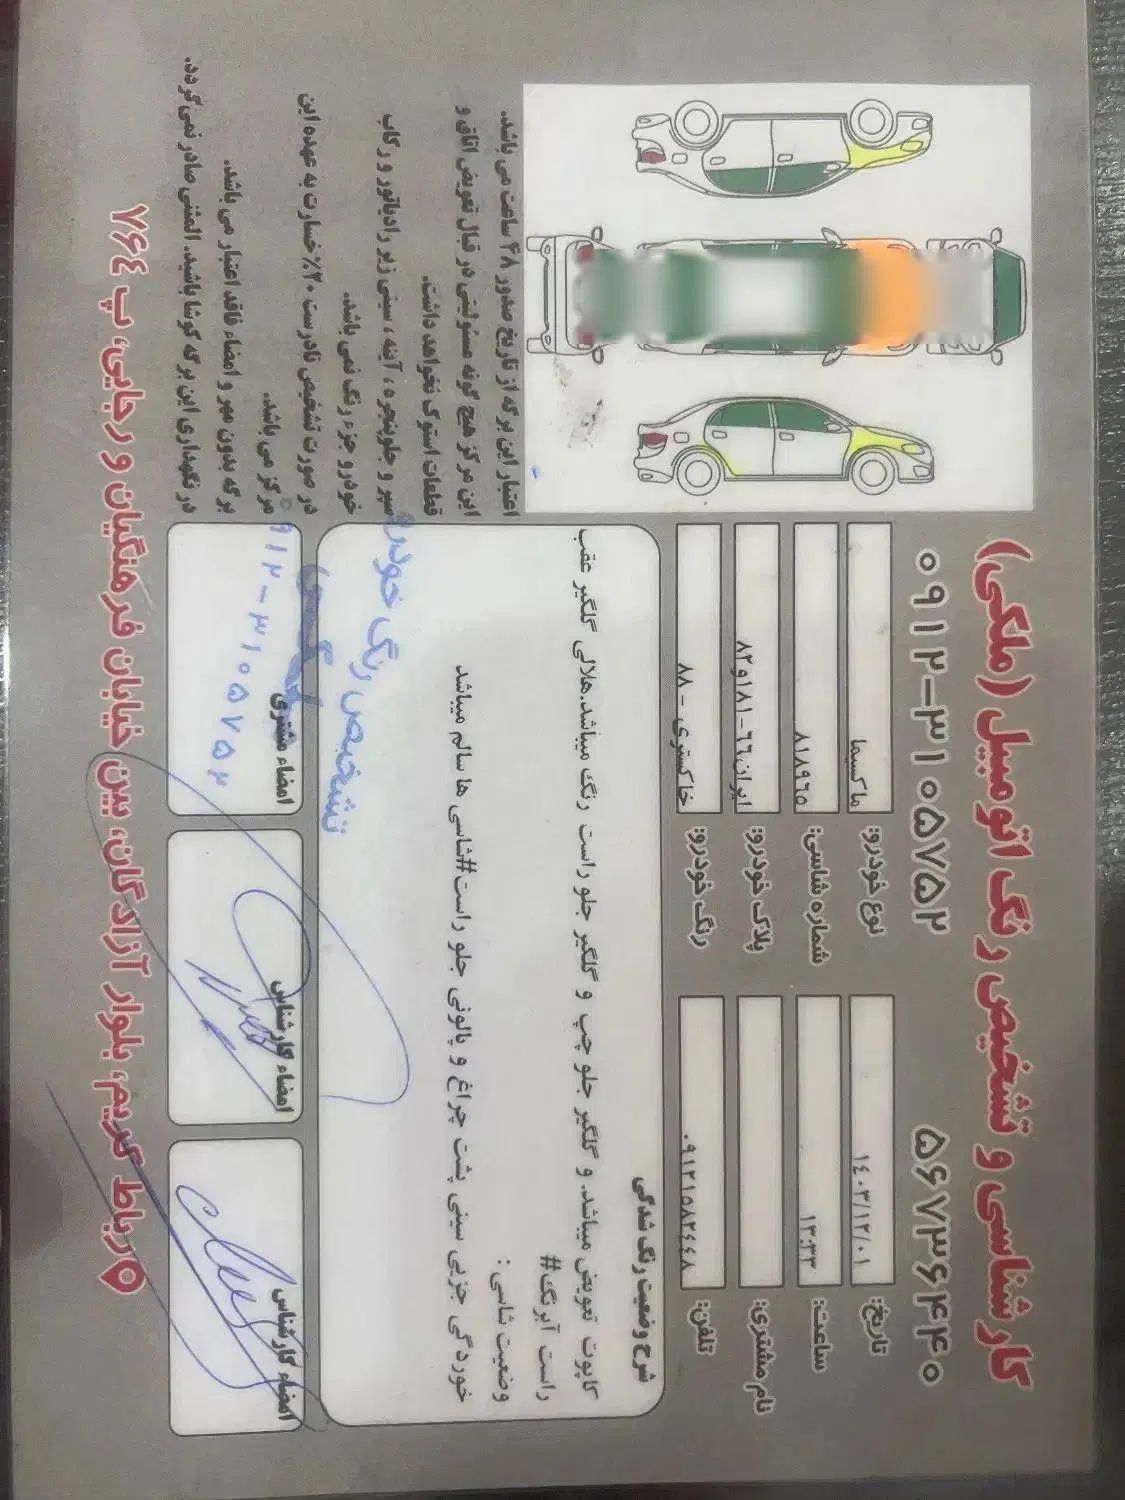 کارشناسی و تشخیص رنگ اتومبیل (ملکی)
۵۶۷۳۶۴۴۰
۰۹۱۲-۳۱۰۵۷۵۲
تاریخ: ۱٤۰۳/۱۲/۰۱
نوع خودرو: ماکسیما
ساعت: ۱۳:۳۳
شماره شاسی: ۸۱۸۹٦٥
نام مشتری:
پلاک خودرو: ایران٦٦-۱۸۱و۸۲
تلفن: ۰۹۱۲۱٥۸۲٤٤۸
رنگ خودرو: خاکستری - ۸۸
شرح وضعیت رنگ شدگی
کاپوت تعویض میباشد. و گلگیر جلو چپ و گلگیر جلو راست رنگ میباشد.هلالی گلگیر عقب
راست آبرنگ#
وضعیت شاسی :
خوردگی جزیی سینی پشت چراغ و پالونی جلو راست#شاسی ها سالم میباشد
تشخیص رنگ خودرو
۹۱۲-۳۱۰۵۷۵۲
امضاء کارشناس
امضاء کارشناس
امضاء مشتری
اعتبار این برگه از تاریخ صدور ۴۸ ساعت می باشد.
این مرکز هیچ گونه مسئولیتی در قبال تعویض اتاق و
قطعات استوک نخواهد داشت.
سپر و جلوپنجره ، آینه ، سینی زیر رادیاتور و رکاب
خودرو جزء رنگ نمی باشد.
در صورت تشخیص نادرست ۲۰٪ خسارت به عهده این
مرکز می باشد.
برگه بدون مهر و امضاء فاقد اعتبار می باشد.
در نگهداری این برگه کوشا باشید. المثنی صادر نمی گردد.
رباط کریم، بلوار آزادگان، بین خیابان فرهنگیان و رجایی، پ ۷۶۴